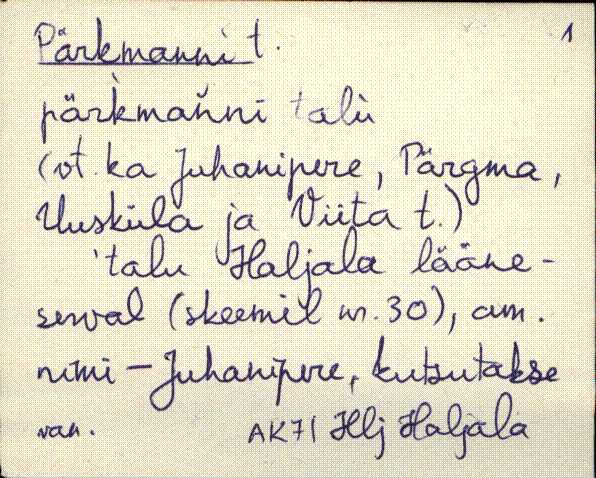 Pärkmanni t. 1
pärkmańni talù
(vt. ka Juhanipere, Pärgma,
Uusküla ja Viita t.)
'talu Haljala lääne-
serval (skeemil nr. 30), am.
nimi – Juhanipere, kutsutakse
van. AK71 Hlj Haljala